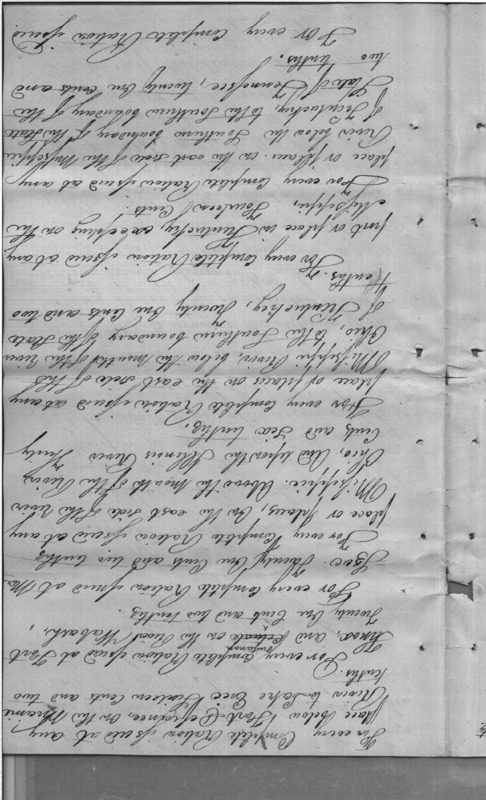 For every Complete Ration issued at any
place below Fort Defiance, on the Miami
River to Lake Erie Sixteen Cents and two
tenths
For every complete Ration issued at Fort
Knox, and Ouitanon on the River Wabash,
Twenty One Cents and two tenths.
For every Complete Ration issued at
Twenty One Cents and two tenths
For every Complete Ration issued at any
place or places, On the east side of the River
Missisippi. Above the mouth of the River
Ohio, And upon the Illinois River Thirty
Cents and Six tenths,
For every Complete Ration issued at any
place or places on the east side of the
Missisippi River below the mouth of the River
Ohio, to the Southern boundary of the State
of Kentuckey, Twenty One Cents and two
tenths.
For every Complete Ration issued at any
port or place in Kentuckey excepting on the
Missisippi, Fourteen Cents.
For every Complete Ration issued at any
place or places on the east side of the Missisippi
River below the Southern boundary of the State
of Kentuckey, to the Southern boundary of the
State of Tennessee, twenty One Cents and
two tenths.
For every Complete Ration issued